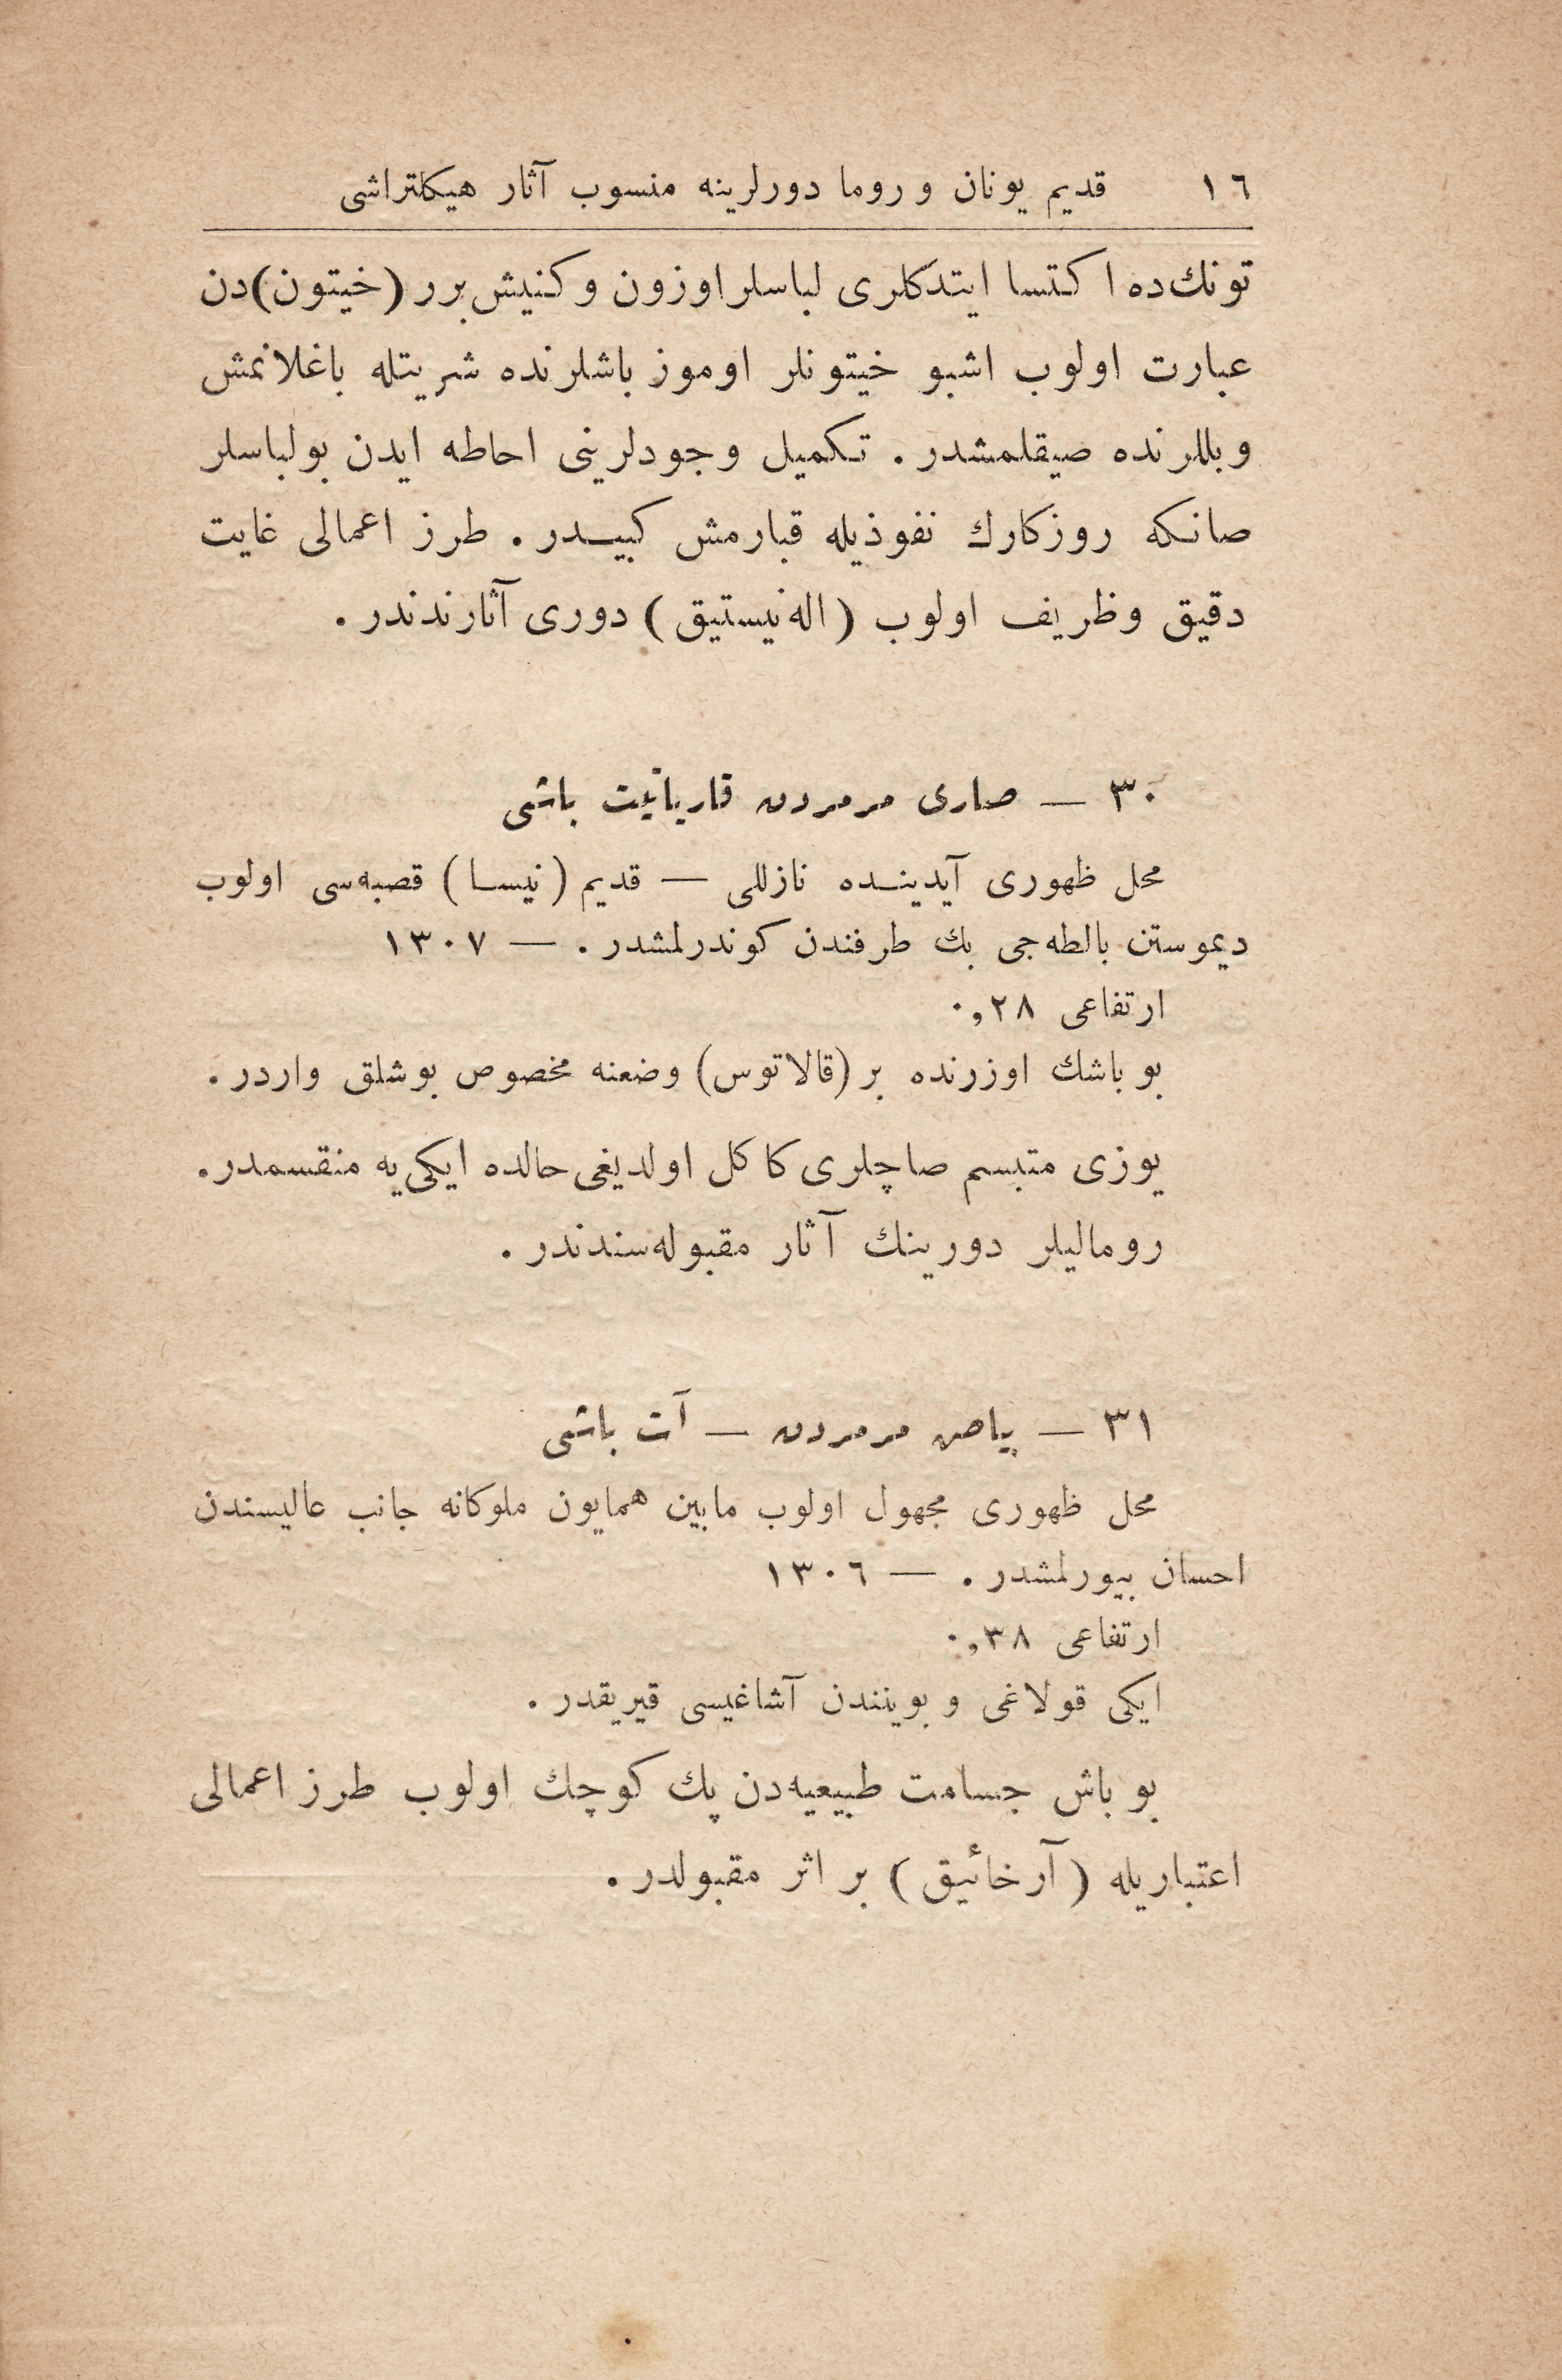 ١٦ قديم يونان و روما دورلرينه منسوب آثار هيكلتراشى
تونك‌ده اكتسا ايتدكلرى لباسلر اوزون وكنيش برر (خيتون)دن
عبارت اولوب اشبو خيتونلر اوموز باشلرنده شريتله باغلانمش
وبللرنده صيقلمشدر. تكميل وجودلرينى احاطه ايدن بولباسلر
صانكه روزكارك نفوذيله قبارمش كبيدر. طرز اعمالى غايت
دقيق وظريف اولوب (اله‌نيستيق) دورى آثارندندر.
٣٠ — صارى مرمردن قارياتيت باشى
محل ظهورى آيدينده نازللى — قديم (نيسا) قصبه‌سى اولوب
ديموستن بالطه‌جى بك طرفندن كوندرلمشدر. — ١٣٠٧
ارتفاعى ٠,٢٨
بو باشك اوزرنده بر (قالاتوس) وضعنه مخصوص بوشلق واردر.
يوزى متبسم صاچلرى كاكل اولديغى حالده ايكى‌يه منقسمدر.
روماليلر دورينك آثار مقبوله‌سندندر.
٣١ — بياض مرمردن — آت باشى
محل ظهورى مجهول اولوب مابين همايون ملوكانه جانب عاليسندن
احسان بيورلمشدر. — ١٣٠٦
ارتفاعى ٠,٣٨
ايكى قولاغى و بويندن آشاغيسى قيريقدر.
بو باش جسامت طبيعيه‌دن پك كوچك اولوب طرز اعمالى
اعتباريله (آرخائيق) بر اثر مقبولدر.